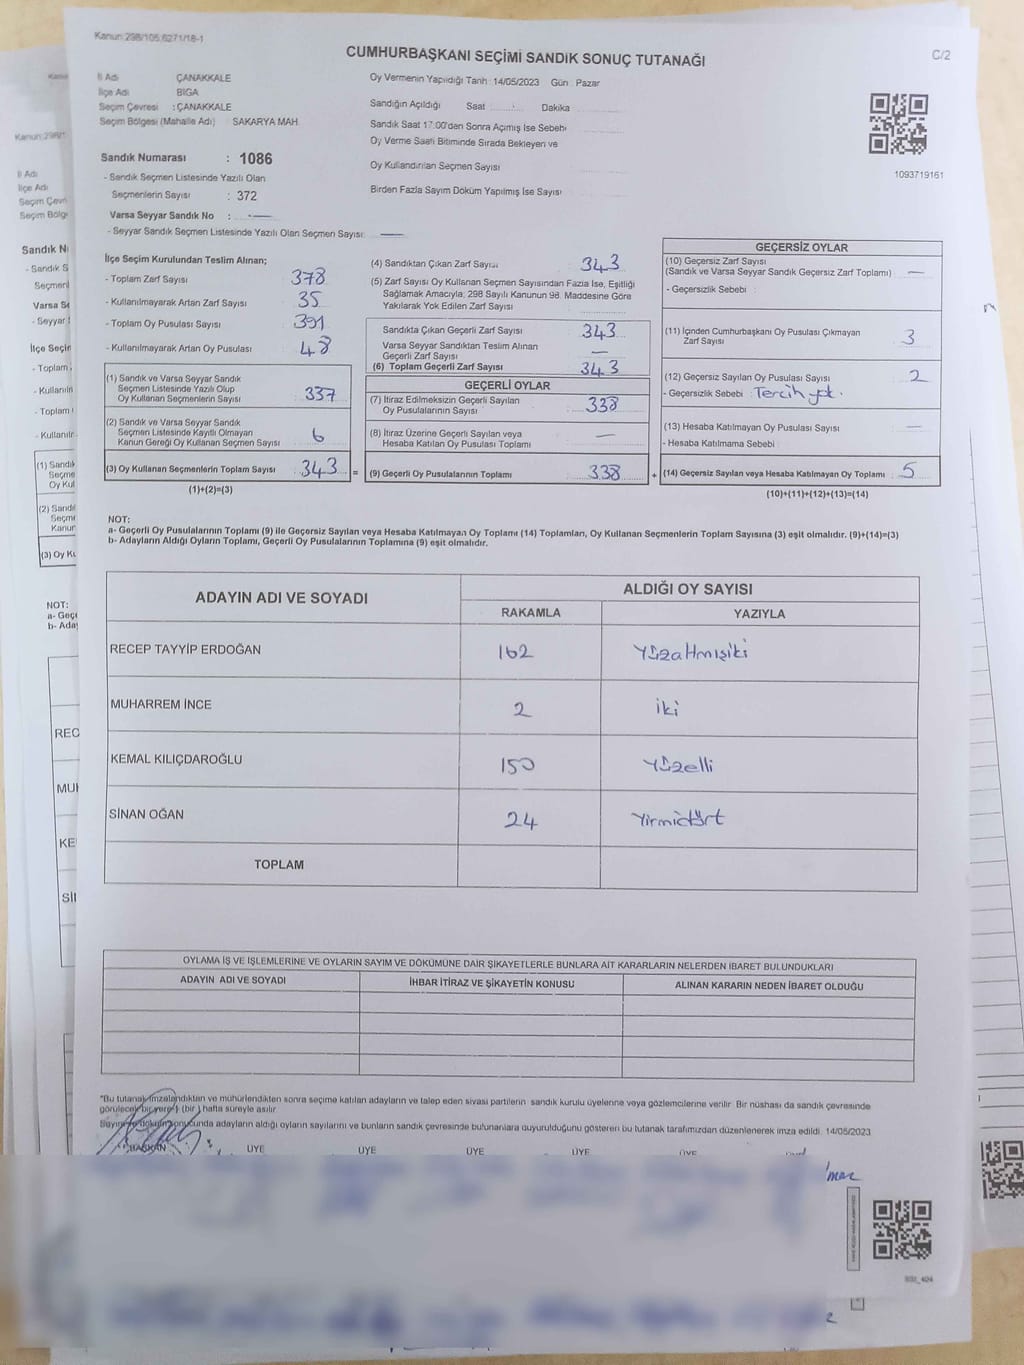 Kanun:298/105.6271/18-1
CUMHURBAŞKANI SEÇİMİ SANDIK SONUÇ TUTANAĞI
C/2
İl Adı ÇANAKKALE
İlçe Adı BİGA
Seçim Çevresi : ÇANAKKALE
Seçim Bölgesi (Mahalle Adı) SAKARYA MAH.
Sandık Numarası : 1086
- Sandık Seçmen Listesinde Yazılı Olan
Seçmenlerin Sayısı : 372
Varsa Seyyar Sandık No : —
- Seyyar Sandık Seçmen Listesinde Yazılı Olan Seçmen Sayısı: —
Oy Vermenin Yapıldığı Tarih: 14/05/2023 Gün: Pazar
Sandığın Açıldığı Saat Dakika
Sandık Saat 17:00'den Sonra Açımış İse Sebebi
Oy Verme Saati Bitiminde Sırada Bekleyen ve
Oy Kullandırılan Seçmen Sayısı
Birden Fazla Sayım Döküm Yapılmış İse Sayısı
1093719161
İlçe Seçim Kurulundan Teslim Alınan;
- Toplam Zarf Sayısı 378
- Kullanılmayarak Artan Zarf Sayısı 35
- Toplam Oy Pusulası Sayısı 391
- Kullanılmayarak Artan Oy Pusulası 48
(1) Sandık ve Varsa Seyyar Sandık
Seçmen Listesinde Yazılı Olup
Oy Kullanan Seçmenlerin Sayısı 337
(2) Sandık ve Varsa Seyyar Sandık
Seçmen Listesinde Kayıtlı Olmayan
Kanun Gereği Oy Kullanan Seçmen Sayısı 6
(3) Oy Kullanan Seçmenlerin Toplam Sayısı 343 =
(1)+(2)=(3)
(4) Sandıktan Çıkan Zarf Sayısı 343
(5) Zarf Sayısı Oy Kullanan Seçmen Sayısından Fazla İse, Eşitliği
Sağlamak Amacıyla, 298 Sayılı Kanunun 98. Maddesine Göre
Yakılarak Yok Edilen Zarf Sayısı
Sandıkta Çıkan Geçerli Zarf Sayısı 343
Varsa Seyyar Sandıktan Teslim Alınan
Geçerli Zarf Sayısı —
(6) Toplam Geçerli Zarf Sayısı 343
GEÇERLİ OYLAR
(7) İtiraz Edilmeksizin Geçerli Sayılan
Oy Pusulalarının Sayısı 338
(8) İtiraz Üzerine Geçerli Sayılan veya
Hesaba Katılan Oy Pusulası Toplamı —
(9) Geçerli Oy Pusulalarının Toplamı 338 +
GEÇERSİZ OYLAR
(10) Geçersiz Zarf Sayısı
(Sandık ve Varsa Seyyar Sandık Geçersiz Zarf Toplamı) —
- Geçersizlik Sebebi :
(11) İçinden Cumhurbaşkanı Oy Pusulası Çıkmayan
Zarf Sayısı 3
(12) Geçersiz Sayılan Oy Pusulası Sayısı 2
- Geçersizlik Sebebi : Tercih yok.
(13) Hesaba Katılmayan Oy Pusulası Sayısı —
- Hesaba Katılmama Sebebi :
(14) Geçersiz Sayılan veya Hesaba Katılmayan Oy Toplamı : 5
(10)+(11)+(12)+(13)=(14)
NOT:
a- Geçerli Oy Pusulalarının Toplamı (9) ile Geçersiz Sayılan veya Hesaba Katılmayan Oy Toplamı (14) Toplamları, Oy Kullanan Seçmenlerin Toplam Sayısına (3) eşit olmalıdır. (9)+(14)=(3)
b- Adayların Aldığı Oyların Toplamı, Geçerli Oy Pusulalarının Toplamına (9) eşit olmalıdır.
ADAYIN ADI VE SOYADI
ALDIĞI OY SAYISI
RAKAMLA YAZIYLA
RECEP TAYYİP ERDOĞAN 162 Yüzaltmışiki
MUHARREM İNCE 2 iki
KEMAL KILIÇDAROĞLU 150 Yüzelli
SİNAN OĞAN 24 Yirmidört
TOPLAM
OYLAMA İŞ VE İŞLEMLERİNE VE OYLARIN SAYIM VE DÖKÜMÜNE DAİR ŞİKAYETLERLE BUNLARA AİT KARARLARIN NELERDEN İBARET BULUNDUKLARI
ADAYIN ADI VE SOYADI İHBAR İTİRAZ VE ŞİKAYETİN KONUSU ALINAN KARARIN NEDEN İBARET OLDUĞU
"Bu tutanak imzalandıktan ve mühürlendikten sonra seçime katılan adayların ve talep eden siyasi partilerin sandık kurulu üyelerine veya gözlemcilerine verilir. Bir nüshası da sandık çevresinde
görülecek bir yere 1 (bir) hafta süreyle asılır.
Sayım ve döküm sonucunda adayların aldığı oyların sayılarını ve bunların sandık çevresinde bulunanlara duyurulduğunu gösteren bu tutanak tarafımızdan düzenlenerek imza edildi. 14/05/2023
BAŞKAN ÜYE ÜYE ÜYE ÜYE ÜYE